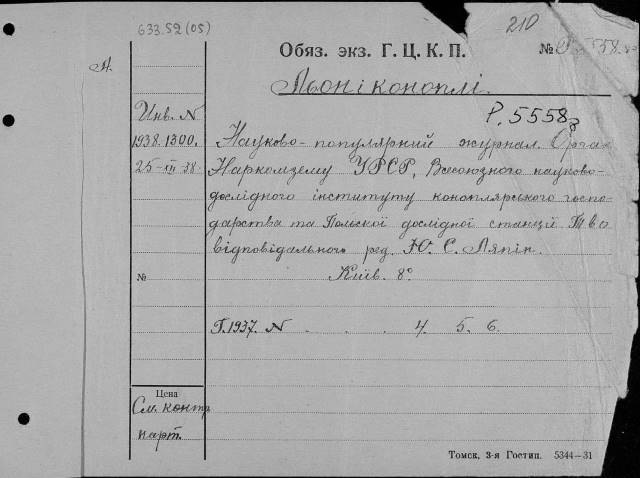 633.52 (05)
210
Обяз. экз. Г. Ц. К. П.
№ 5558
Л.
Льон і коноплі.
Р. 5558
Инв. N
1938. 1300.
25-XII-38
Науково-популярний журнал. Орган
Наркомзему УРСР, Всесоюзного науково-
дослідного інституту коноплярського госпо-
дарства та Польскої дослідної станції. Т.в.о
відповідального ред. Ю. С. Ляпін.
Київ. 8°.
№
Г. 1937. N . . . 4. 5. 6.
Цена
См. контр
карт.
Томск, 3-я Гостип. 5344—31